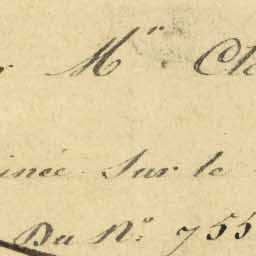 Mr. Cl
inée sur le
Du No. 755